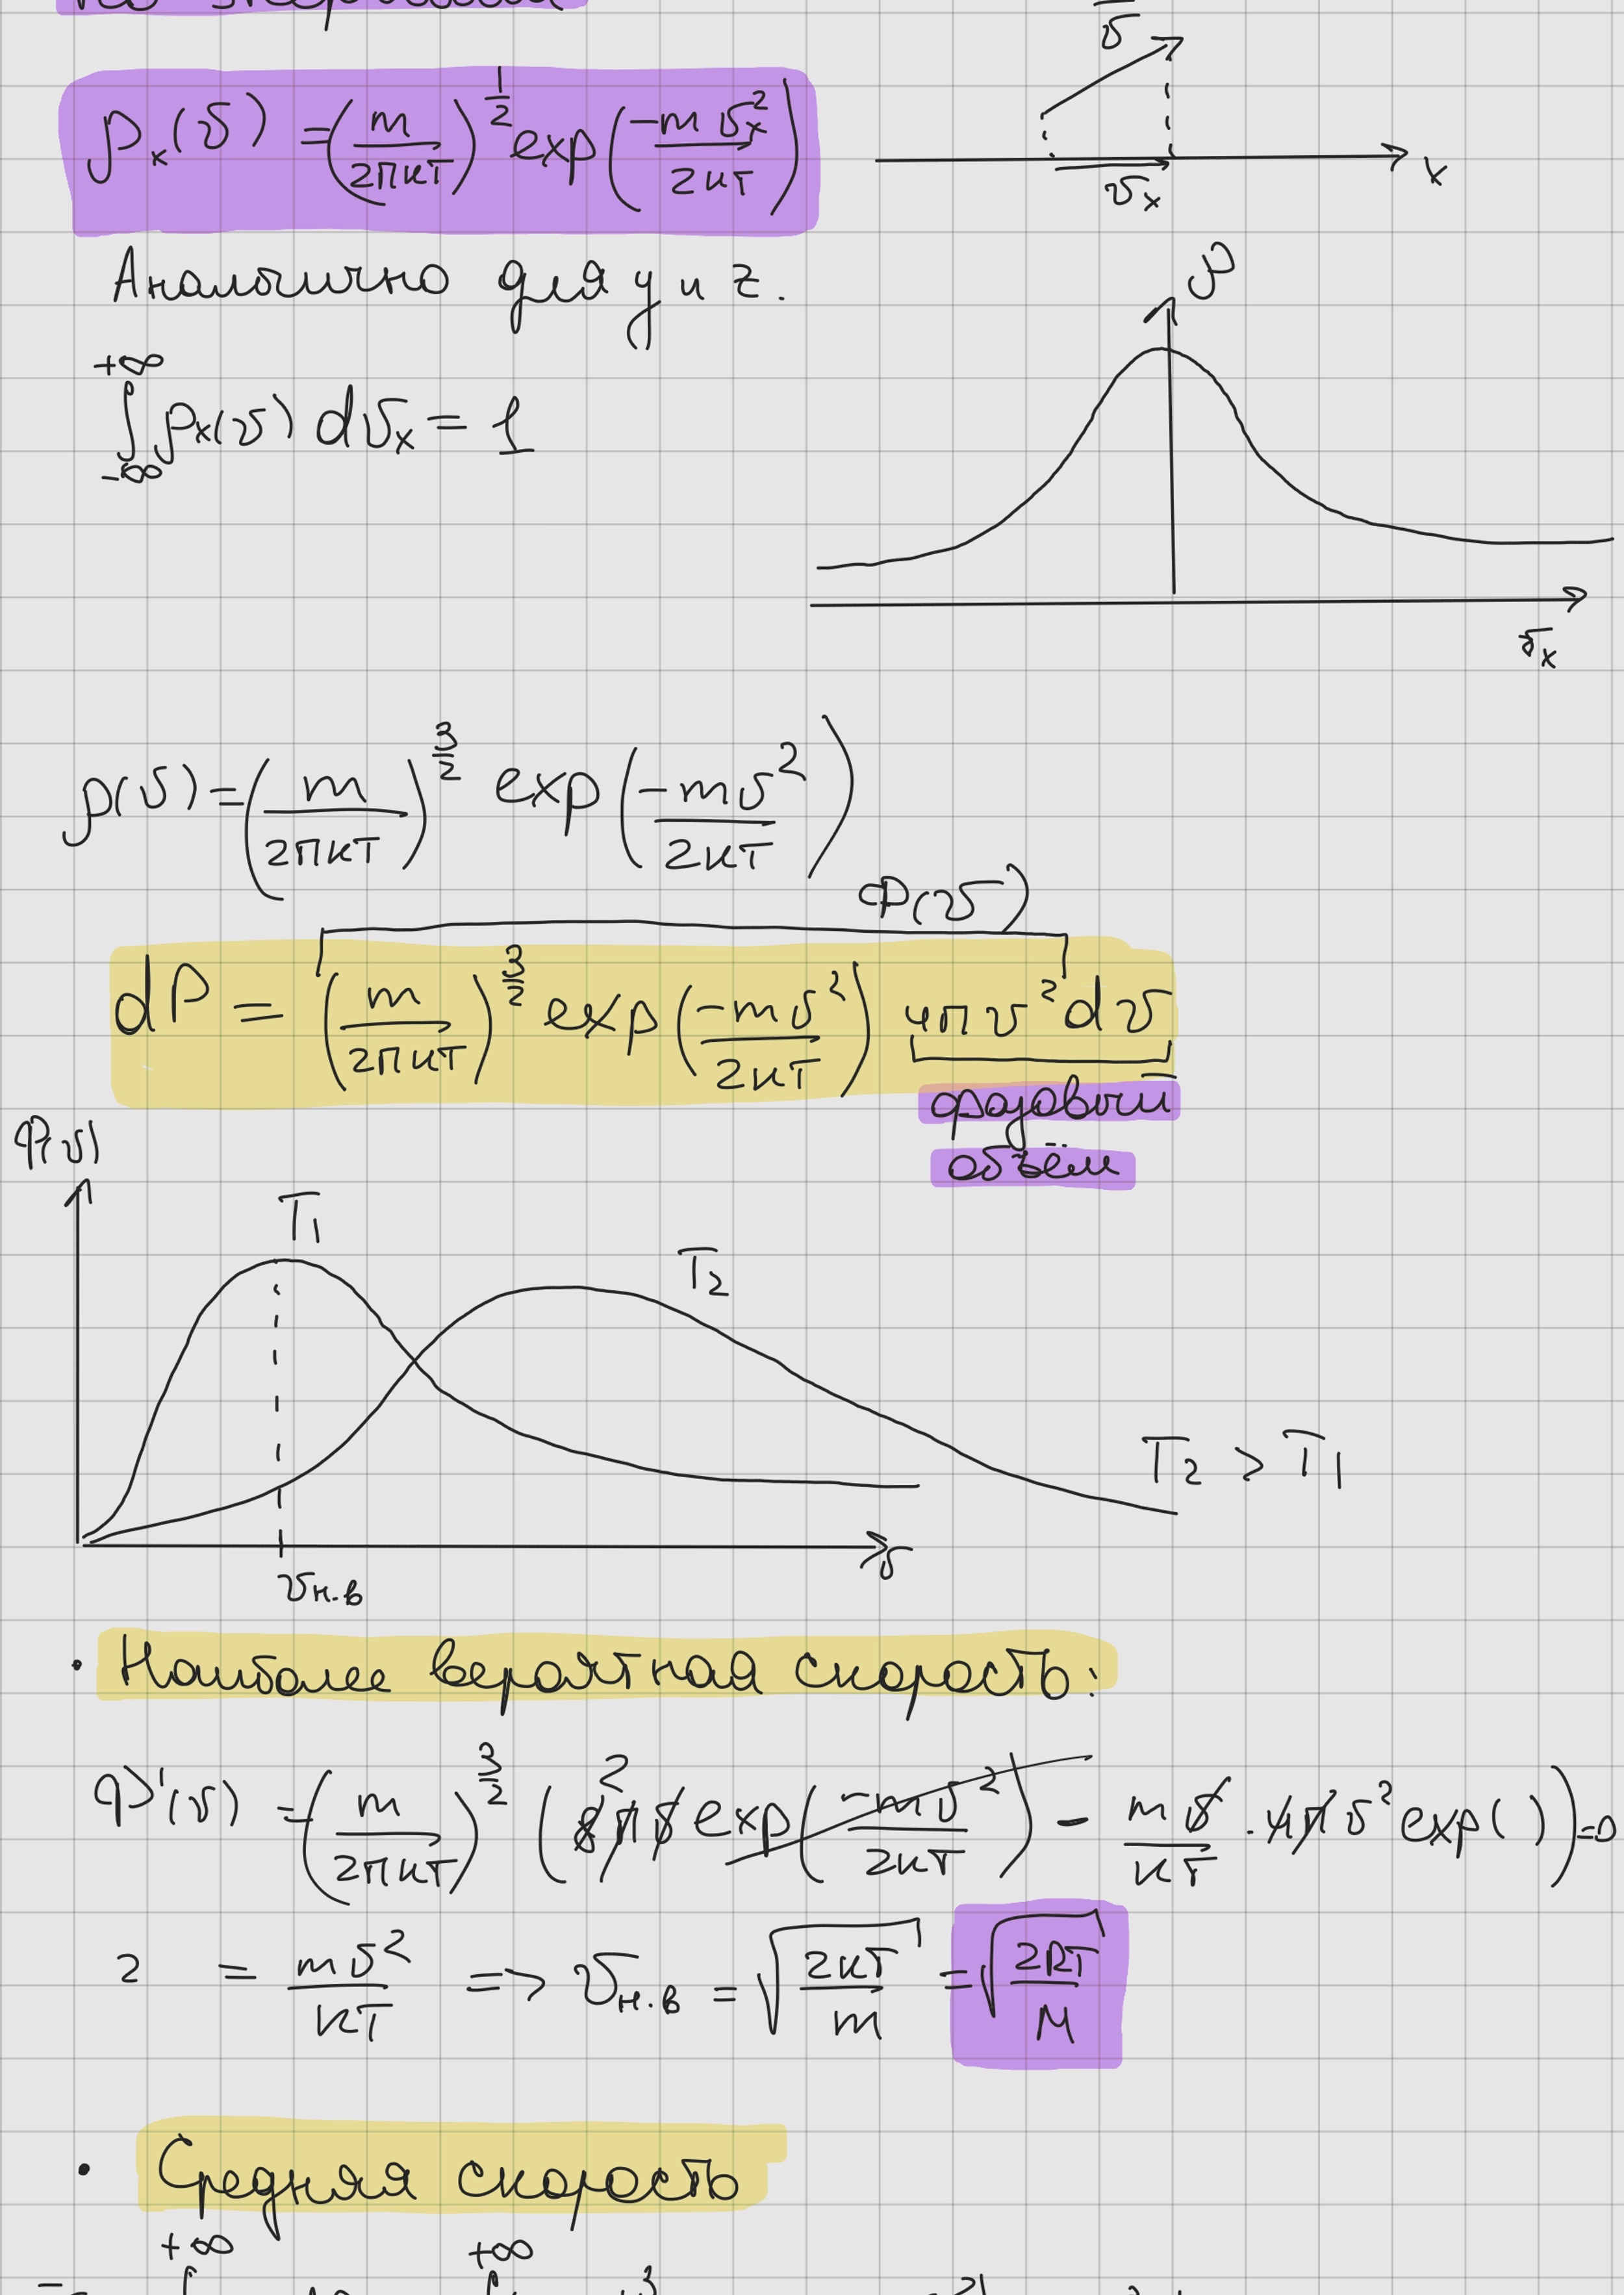 ρₓ(v) = (m/2πкT)^(1/2) exp(-mvₓ²/2кT)
v
vₓ
x
Аналогично для y и z.
ρ
+∞
∫ρₓ(v) dvₓ = 1
-∞
vₓ
ρ(v) = (m/2πкT)^(3/2) exp(-mv²/2кT)
Ф(v)
dP = (m/2πкT)^(3/2) exp(-mv²/2кT) 4πv²dv
фазовый
объём
Ф(v)
T₁
T₂
T₂ > T₁
v
vн.в
• Наиболее вероятная скорость:
Ф'(v) = (m/2πкT)^(3/2) (8πv exp(-mv²/2кT) - mv/кT · 4πv² exp( )) = 0
2
2 = mv²/кT => vн.в = √(2кT/m) = √(2RT/M)
• Средняя скорость
+∞ +∞